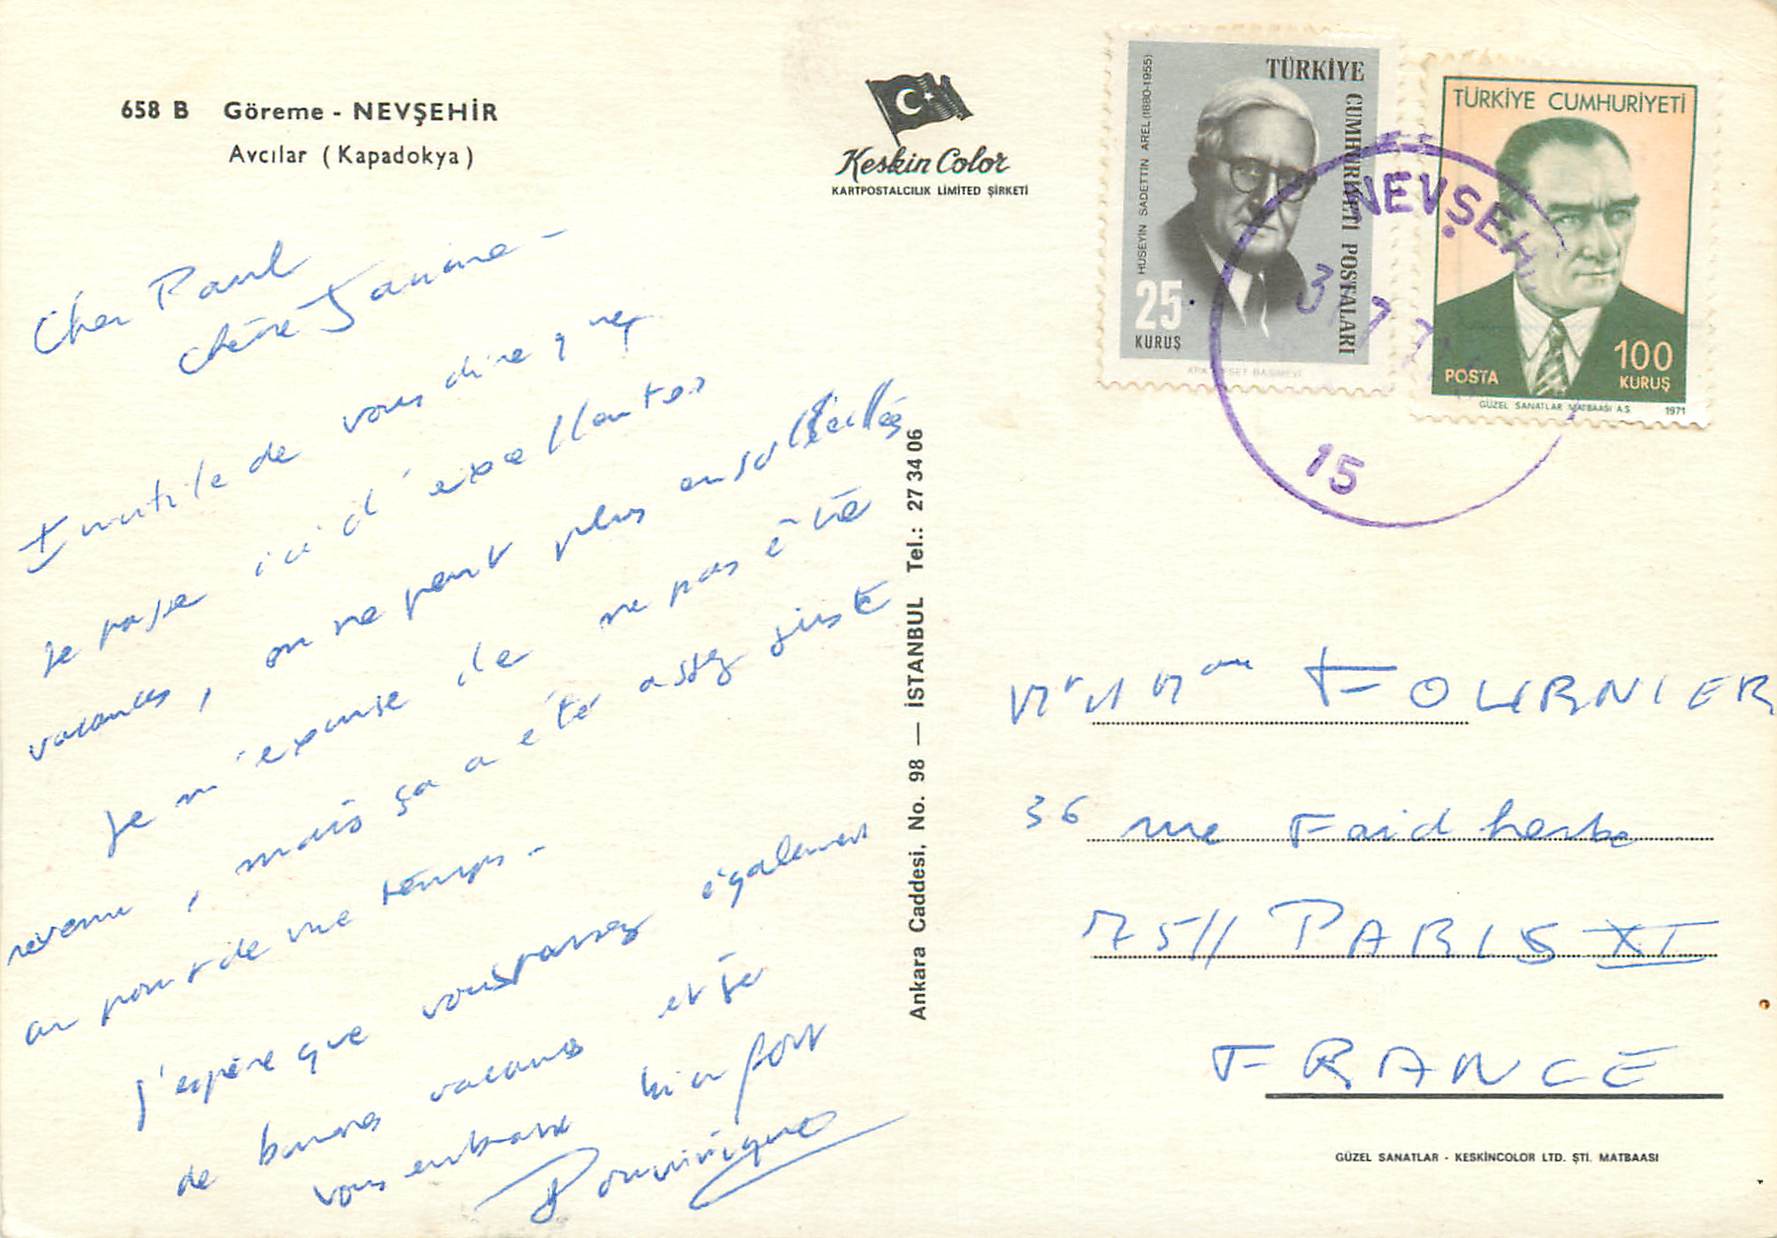 658 B Göreme - NEVŞEHİR
Avcılar (Kapadokya)
Keskin Color
KARTPOSTALCILIK LIMITED ŞİRKETİ
TÜRKİYE CUMHURİYETİ POSTALARI
HÜSEYİN SADETTİN AREL (1880-1955)
25
KURUŞ
TÜRKİYE CUMHURİYETİ
POSTA
100
KURUŞ
GÜZEL SANATLAR MATBAASI A.S. 1971
NEVŞEHİ
15
Cher Paul
chère Janine -
Inutile de vous dire que
je passe ici d'excellentes
vacances, on ne peut plus ensoleillées
Je m'excuse de ne pas être
revenu, mais ça a été assez juste
au point de vue temps -
J'espère que vous passez également
de bonnes vacances et je
vous embrasse bien fort
Dominique
Ankara Caddesi, No. 98 — İSTANBUL Tel.: 27 34 06
FOURNIER
36 rue Faidherbe
7511 PARIS XI
FRANCE
GÜZEL SANATLAR - KESKİNCOLOR LTD. ŞTİ. MATBAASI